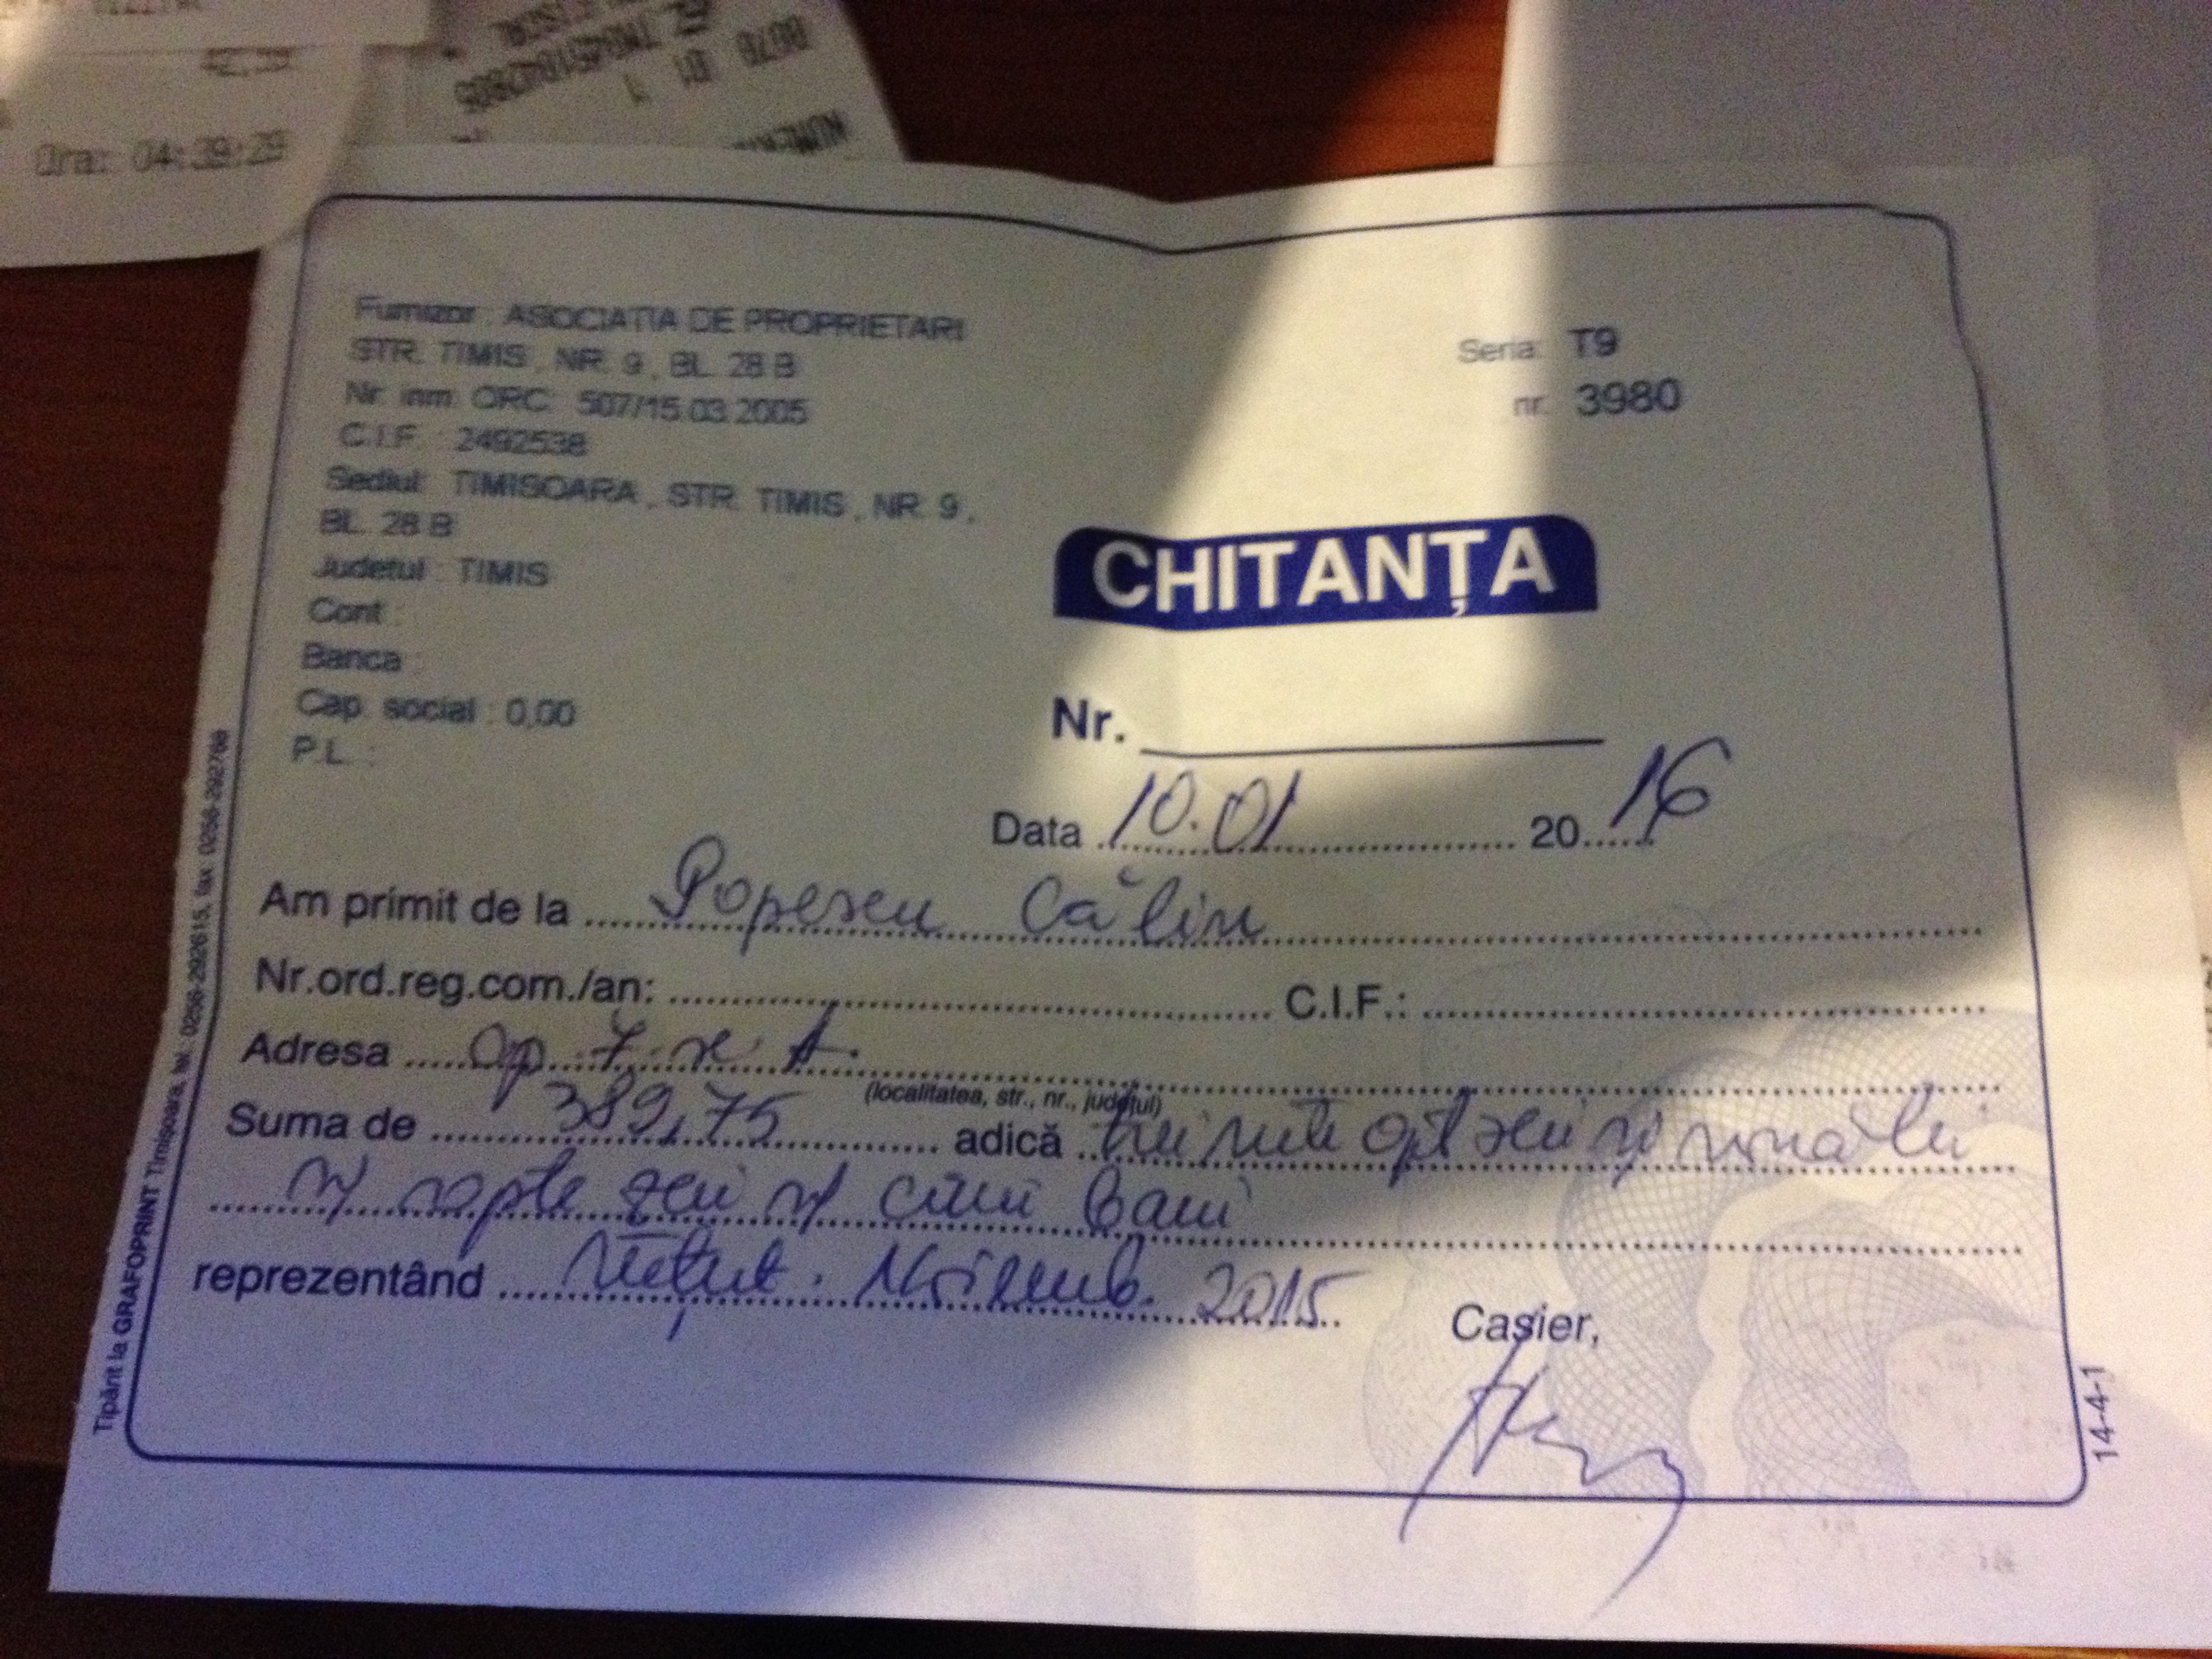 Furnizor: ASOCIATIA DE PROPRIETARI
STR. TIMIS, NR. 9, BL. 28 B
Nr. inm. ORC: 507/15.03.2005
C.I.F.: 2492538
Sediul: TIMISOARA, STR. TIMIS, NR. 9,
BL. 28 B
Judetul: TIMIS
Cont:
Banca:
Cap. social: 0,00
P.L.:
Seria: T9
nr. 3980
CHITANȚA
Nr.
Data 10.01 2016
Am primit de la Popescu Călin
Nr.ord.reg.com./an: C.I.F.:
Adresa ap. 7.
(localitatea, str., nr., județul)
Suma de 389,75 adică trei sute opt zeci și nouă lei
și șapte zeci și cinci bani
reprezentând Întreț. Noiemb. 2015
Casier,
Tipărit la GRAFOPRINT Timișoara, tel.: 0256-292615, fax: 0256-292768
14-4-1
Ora: 04:39:29